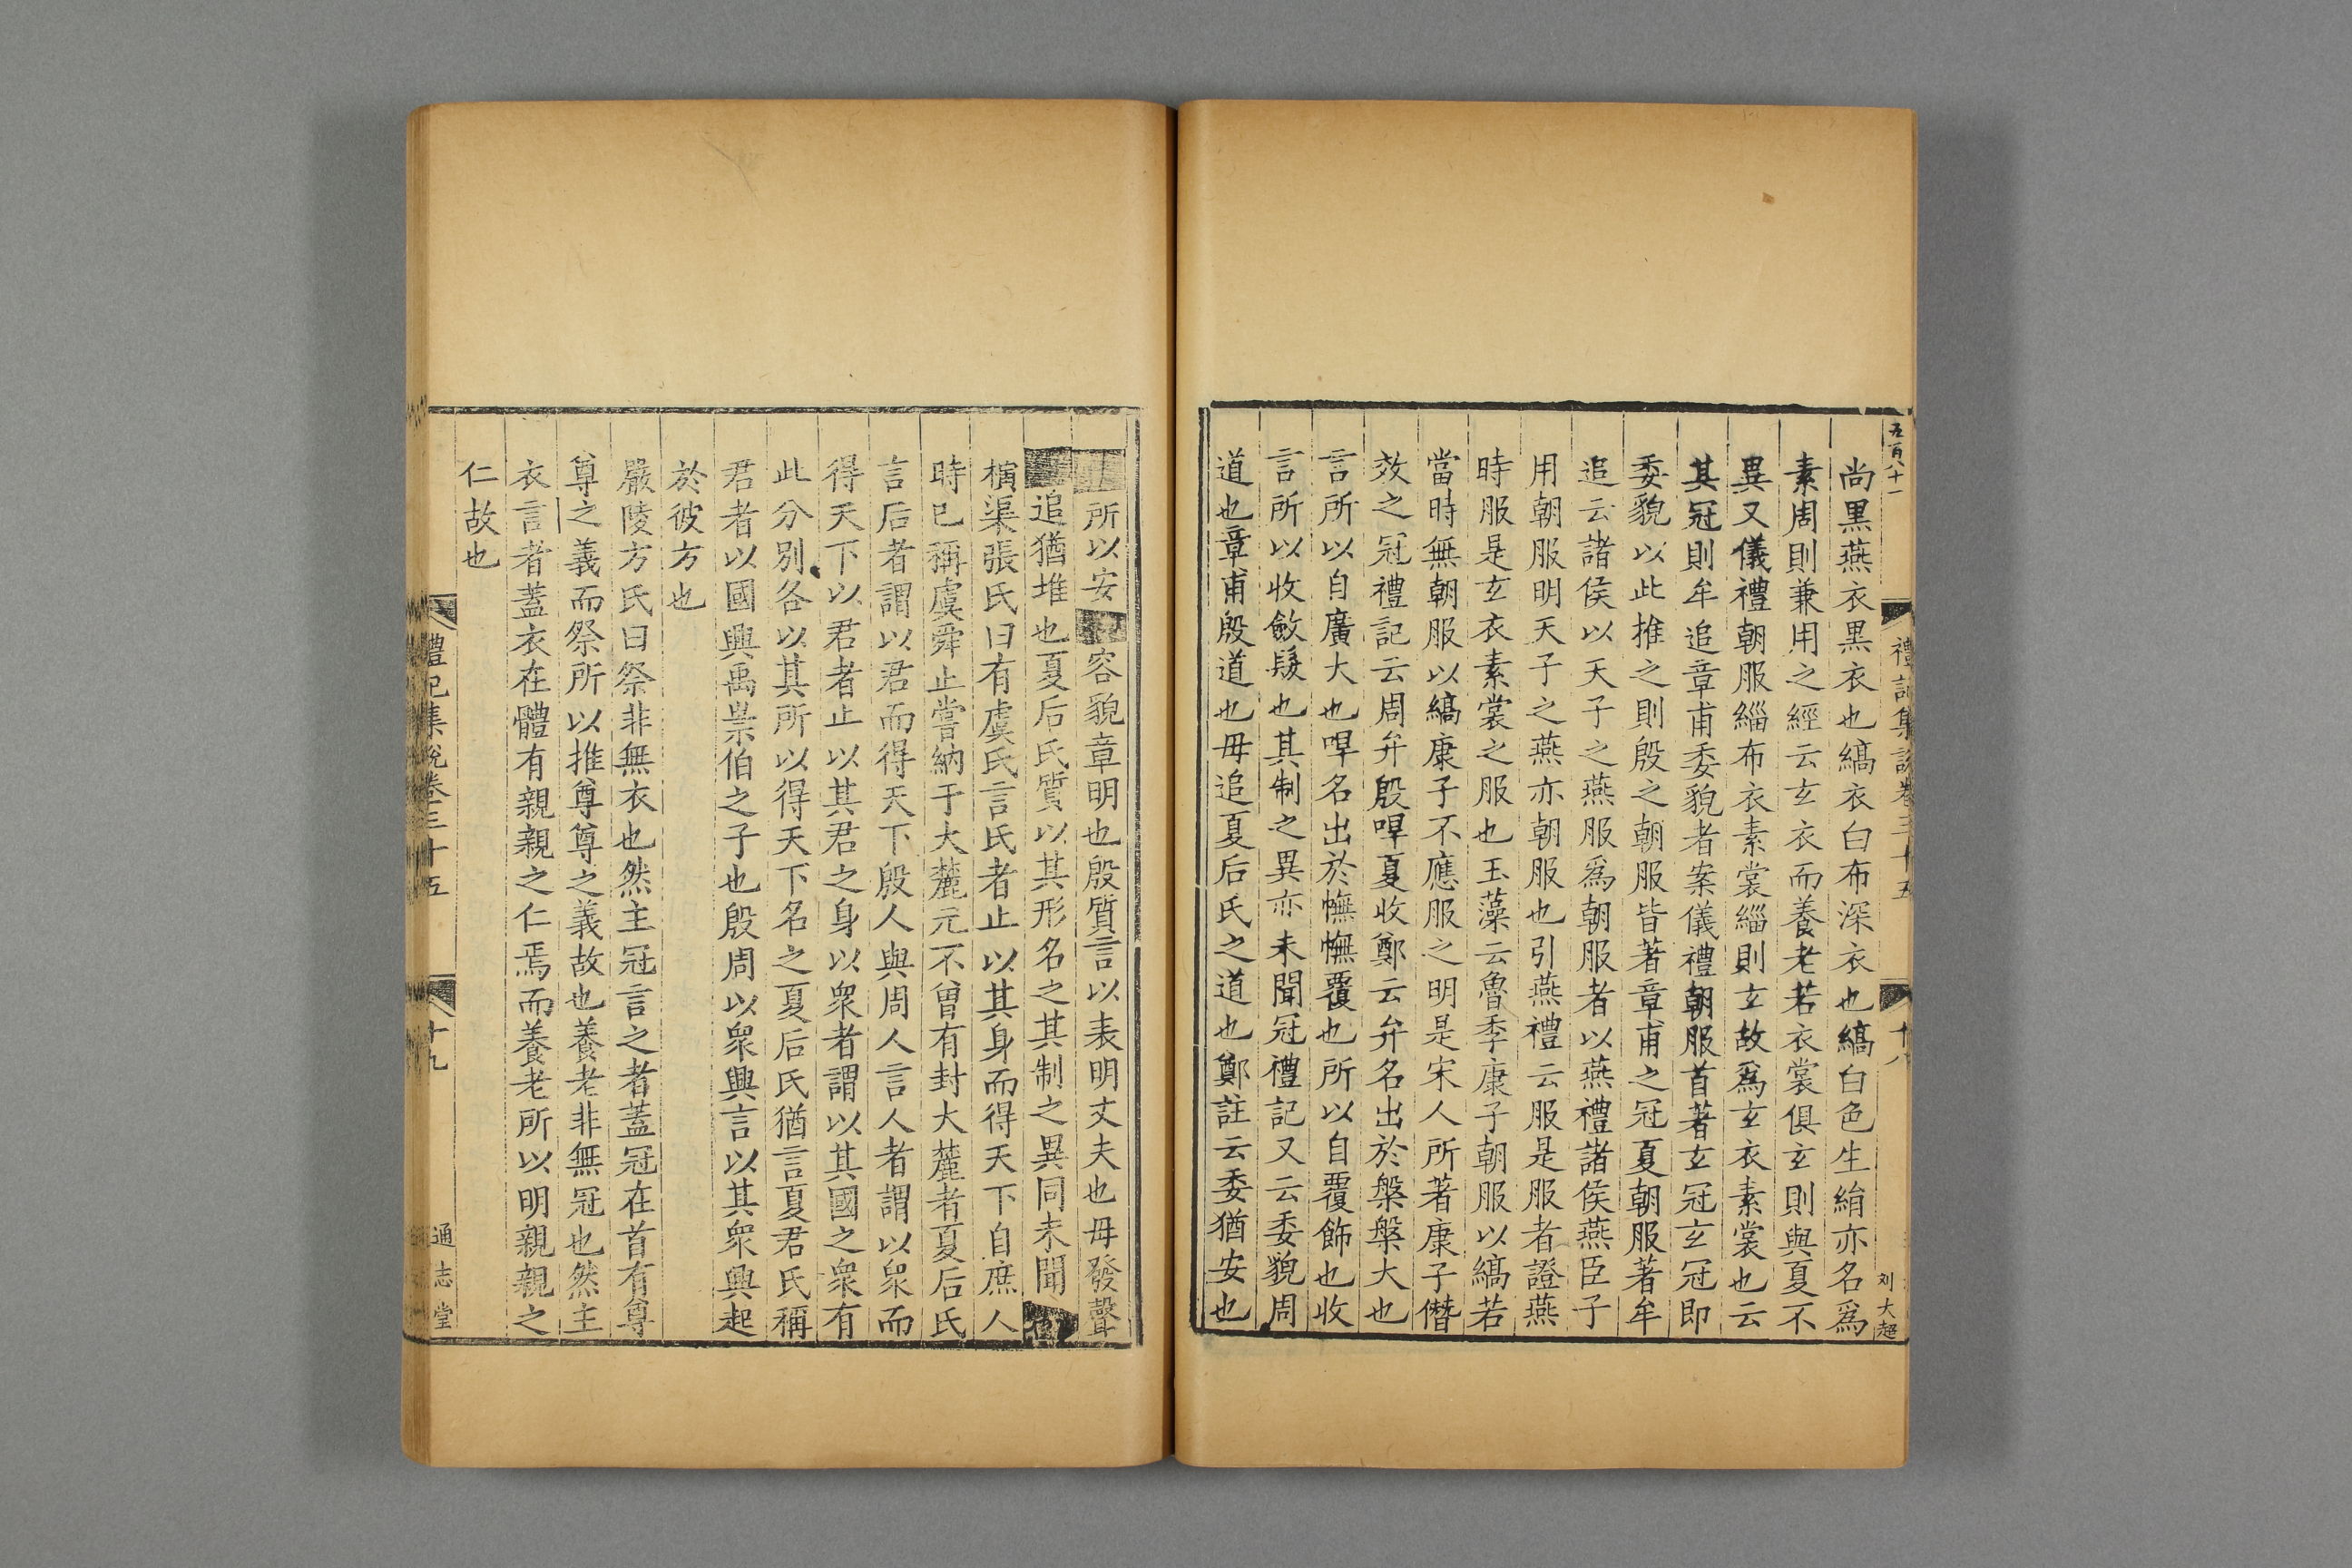 五百八十一
禮記集說卷三十五
十八
刘大超
尚黒燕衣黒衣也縞衣白布深衣也縞白色生絹亦名爲
素周則兼用之經云玄衣而養老若衣裳俱玄則與夏不
異又儀禮朝服緇布衣素裳緇則玄故爲玄衣素裳也云
其冠則牟追章甫委貌者案儀禮朝服首著玄冠玄冠即
委貌以此推之則殷之朝服皆著章甫之冠夏朝服著牟
追云諸侯以天子之燕服爲朝服者以燕禮諸侯燕臣子
用朝服明天子之燕亦朝服也引燕禮云服是服者證燕
時服是玄衣素裳之服也玉藻云魯季康子朝服以縞若
當時無朝服以縞康子不應服之明是宋人所著康子僭
效之冠禮記云周弁殷哻夏收鄭云弁名出於槃槃大也
言所以自廣大也哻名出於幠幠覆也所以自覆飾也收
言所以收斂髮也其制之異亦未聞冠禮記又云委貌周
道也章甫殷道也毋追夏后氏之道也鄭註云委猶安也
所以安容貌章明也殷質言以表明丈夫也毋發聲
追猶堆也夏后氏質以其形名之其制之異同未聞
横渠張氏曰有虞氏言氏者止以其身而得天下自庶人
時已稱虞舜止嘗納于大麓元不曾有封大麓者夏后氏
言后者謂以君而得天下殷人與周人言人者謂以衆而
得天下以君者止以其君之身以衆者謂以其國之衆有
此分別各以其所以得天下名之夏后氏猶言夏君氏稱
君者以國興禹崇伯之子也殷周以衆興言以其衆興起
於彼方也
嚴陵方氏曰祭非無衣也然主冠言之者蓋冠在首有尊
尊之義而祭所以推尊尊之義故也養老非無冠也然主
衣言者蓋衣在體有親親之仁焉而養老所以明親親之
仁故也
禮記集說卷三十五
十九
通志堂